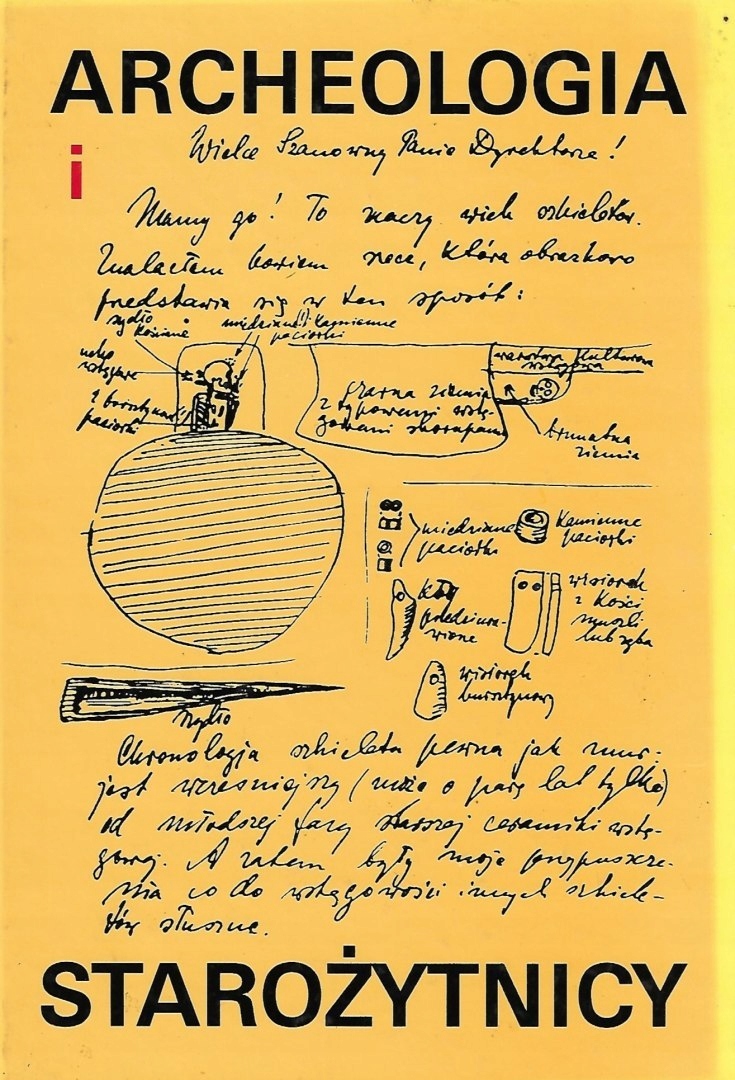 ARCHEOLOGIA
i
Wielce Szanowny Panie Dyrektorze!
Mamy go! To znaczy wiek szkieletów.
Znalazłem bowiem rzecz, która obrazkowo
przedstawia się w ten sposób:
szydło
kościane
miedziane i kamienne
paciorki
ucho
wstęgowe
2 bursztynowe
paciorki
czarna ziemia
z typowemi wstę-
gowemi skorupami
warstwa kulturowa
wstęgowa
brunatna
ziemia
miedziane
paciorki
kamienne
paciorki
kły
przedziura-
wione
wisiorek
z kości
muszli
lub zęba
wisiorek
bursztynowy
szydło
Chronologja szkieleta pewna jak mur-
jest wcześniejszy (może o parę lat tylko)
od młodszej fazy starszej ceramiki wstę-
gowej. A zatem były moje przypuszcze-
nia co do wstęgowości innych szkiele-
tów słuszne.
STAROŻYTNICY